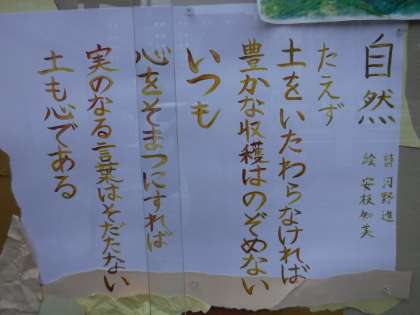 自然
詩 河野進
絵 安枝知美
たえず
土をいたわらなければ
豊かな収穫はのぞめない
いつも
心をそまつにすれば
実のなる言葉はそだたない
土も心である